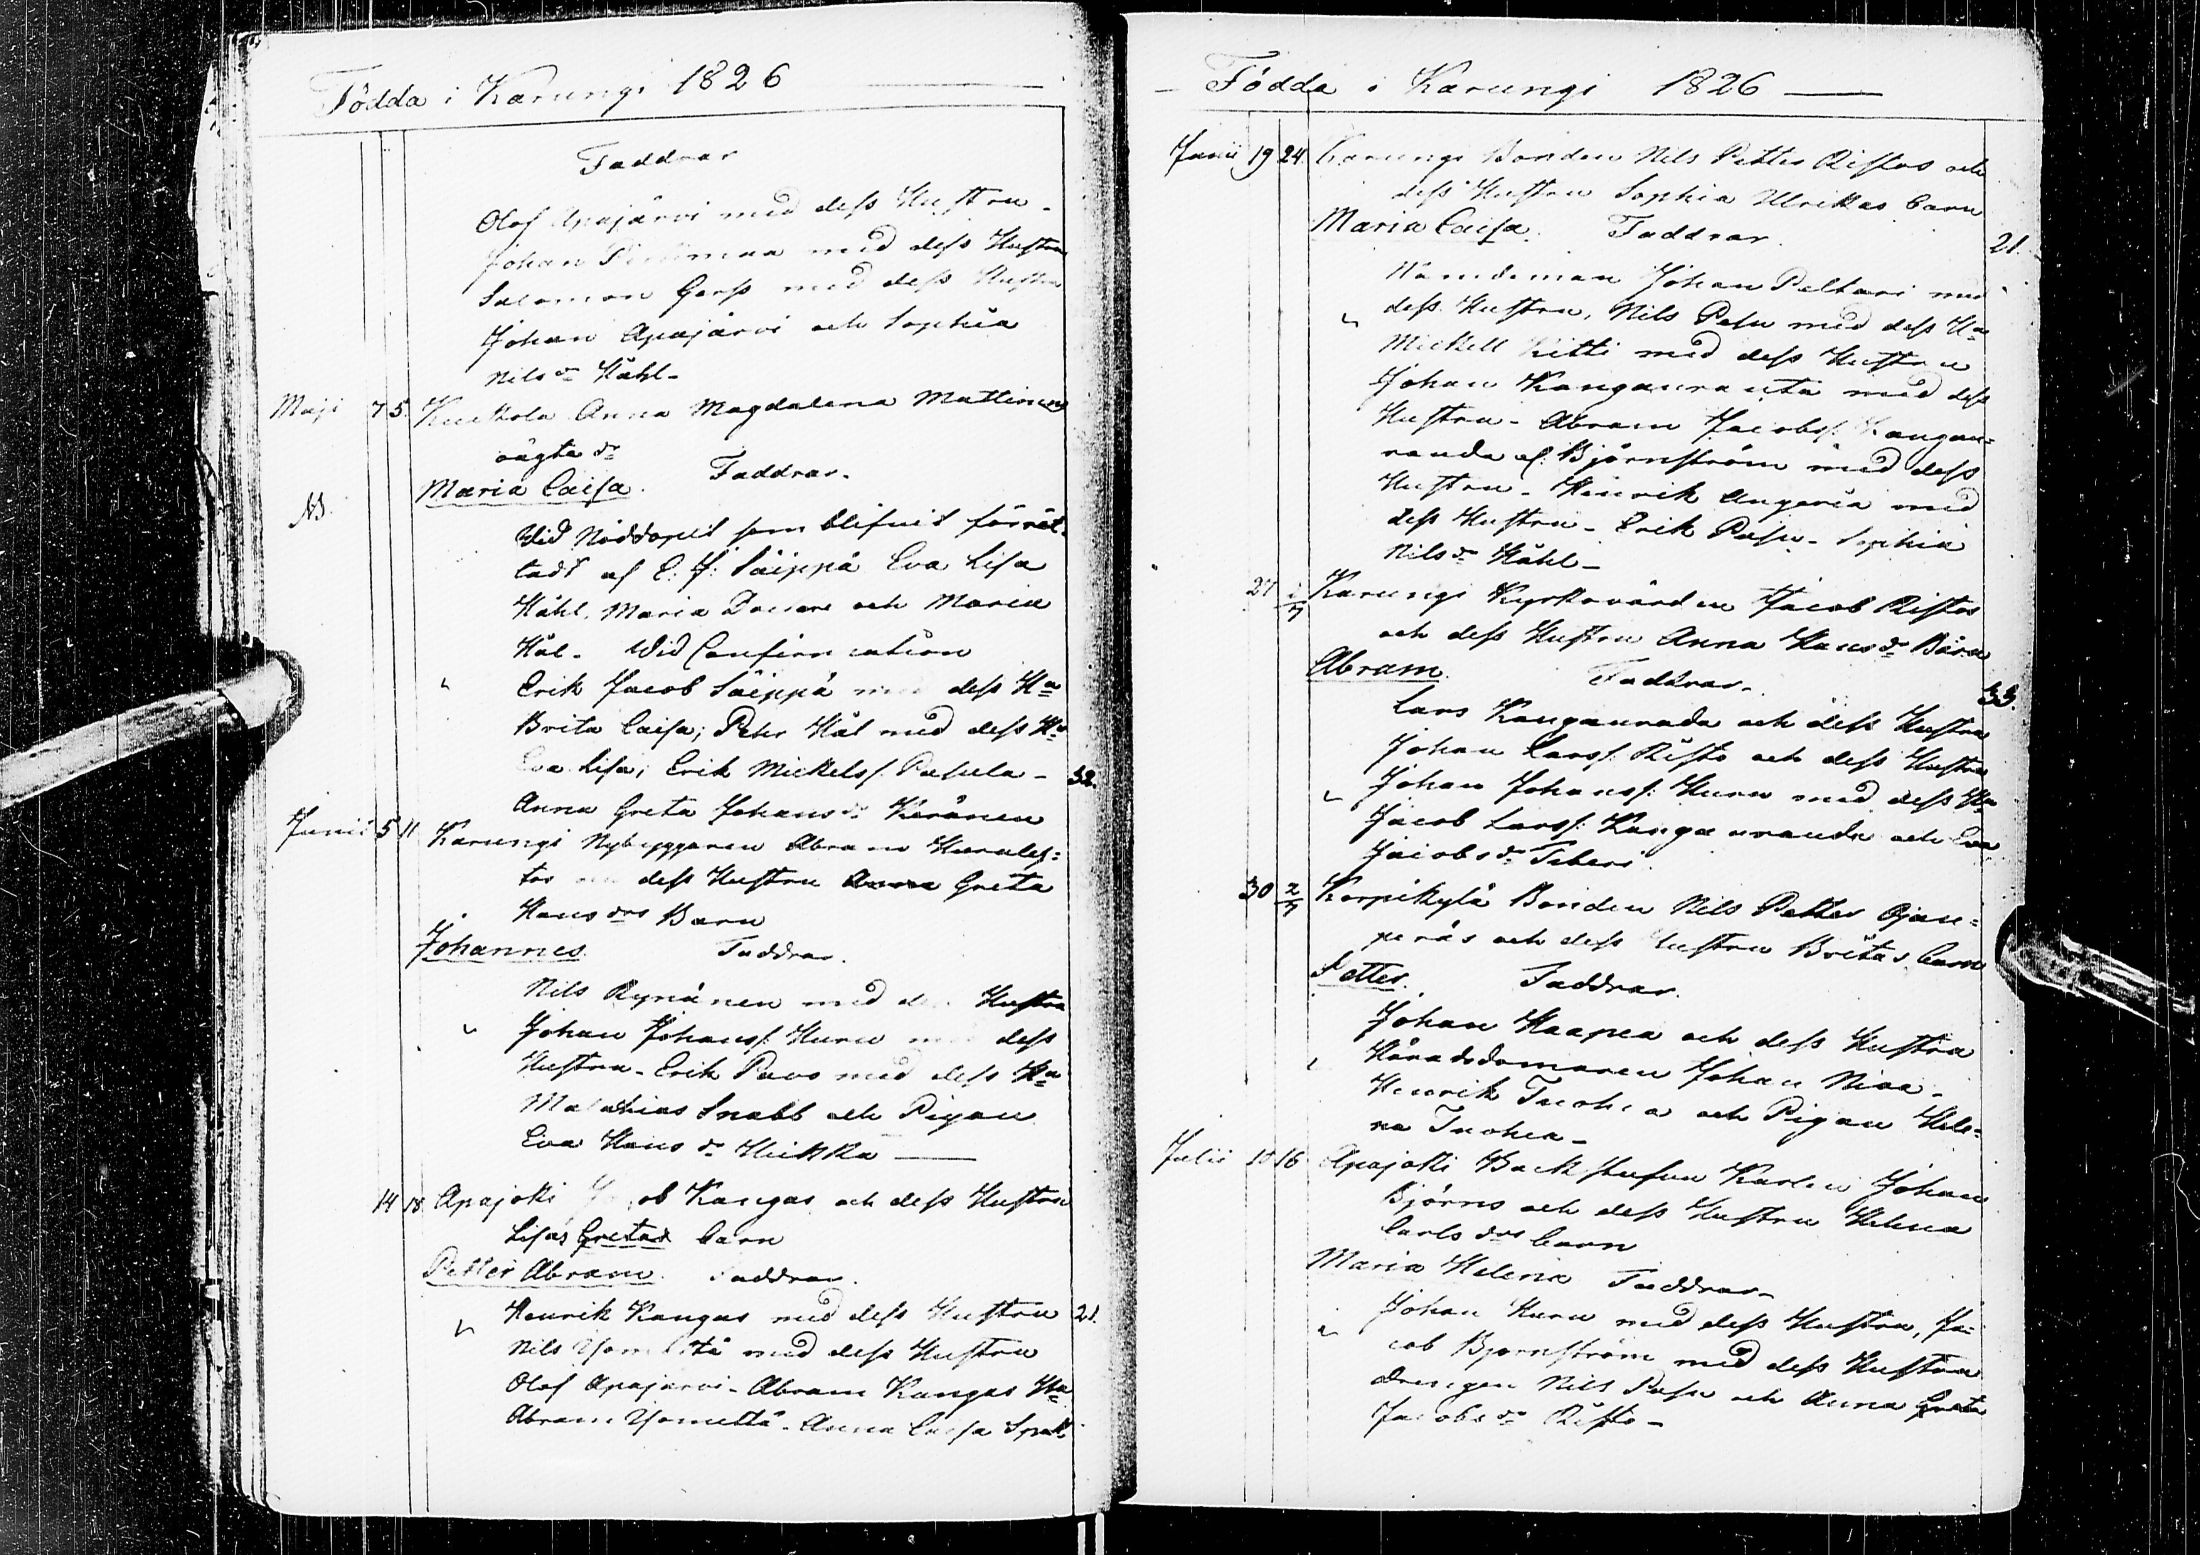 Födda i Karungi 1826
Faddrar
Olof Apajärvi med dess Hustru -
Johan med dess Hustru
Salomon Gerss med dess Hustru
Johan Apajärvi och Sophia
Nils dr Håhl -
Maji 7 5. Kuckola Anna Magdalena Mattinens
oägta dr
Maria Caisa. Faddrar.
NB.
Wid Nöddopet som blifvit förrät-
tadt af E: J: Säippä Eva Lisa
Håhl, Maria och Maria
Hål. Wid Confirmation
Erik Jacob Säippä med dess Ha
Brita Caisa; Petter Hål med dess Ha
Eva Lisa; Erik Mickelss. - 32.
Anna Greta Johans dr Keränen
Junii 5 11 Karungi Nybyggaren Abram
dess Hustru Anna Greta
Hans drs Barn
Johannes. Faddrar.
Nils Rynänen med dess Hustru
Johan Johanss. Huru med dess
Hustru - Erik Pavo med dess Ha
Mathias Snabb och Pigan
Eva Hans dr Heikka
14 18. Apajocki Jacob Kangas och dess Hustru
Lisas Gretas barn
Petter Abram. Faddrar.
Henrik Kangas med dess Hustru 21.
Nils med dess Hustru
Olof Apajärvi - Abram Kangas Ha
Abram - Anna Caisa
Födda i Karungi 1826
Junii 19 24. Karungi Bonden Nils Petter Ristos och
dess Hustru Sophia Ulrikas barn
Maria Caisa. Faddrar. 21.
Nämdeman Johan Peltari med
dess Hustru, Nils Pasu med dess Ha
Mickell Kitti med dess Hustru
Johan Kanganranta med dess
Hustru - Abram Jacobss. Kangan=
randa af: Björnström med dess
Hustru - Henrik Angeria med
dess Hustru - Erik Pasu - Sophia
Nils dr Håhl -
27 2/7 Karungi Kyrkovärden Jacob Ristos
och dess Hustru Anna Hans dr Barn
Abram. Faddrar. 33.
Lars Kanganrada och dess Hustru
Johan Larss. Risto och dess Hustru
Johan Johanss: Huru med dess Ha
Jacob Larss: Kanganranda och Eva
Jacobs dr
30 2/7 Korpikylä Bonden Nils Petter Ojan=
peräs och dess Hustru Britas barn
Petter. Faddrar.
Johan Haapea och dess Hustru
Häradsdomaren Johan Niva -
Henrik Tuohea och Pigan Hele=
na Tuohea -
Julii 15 16 Apajocki Backstufvu Karlen Johan
Björns och dess Hustru Helena
Carls drs barn
Maria Helena Faddrar -
Johan Huru med dess Hustru, Ja=
cob Bjornström med dess Hustru
drengen Nils Pasu och Anna Greta
Jacobs dr Risto -